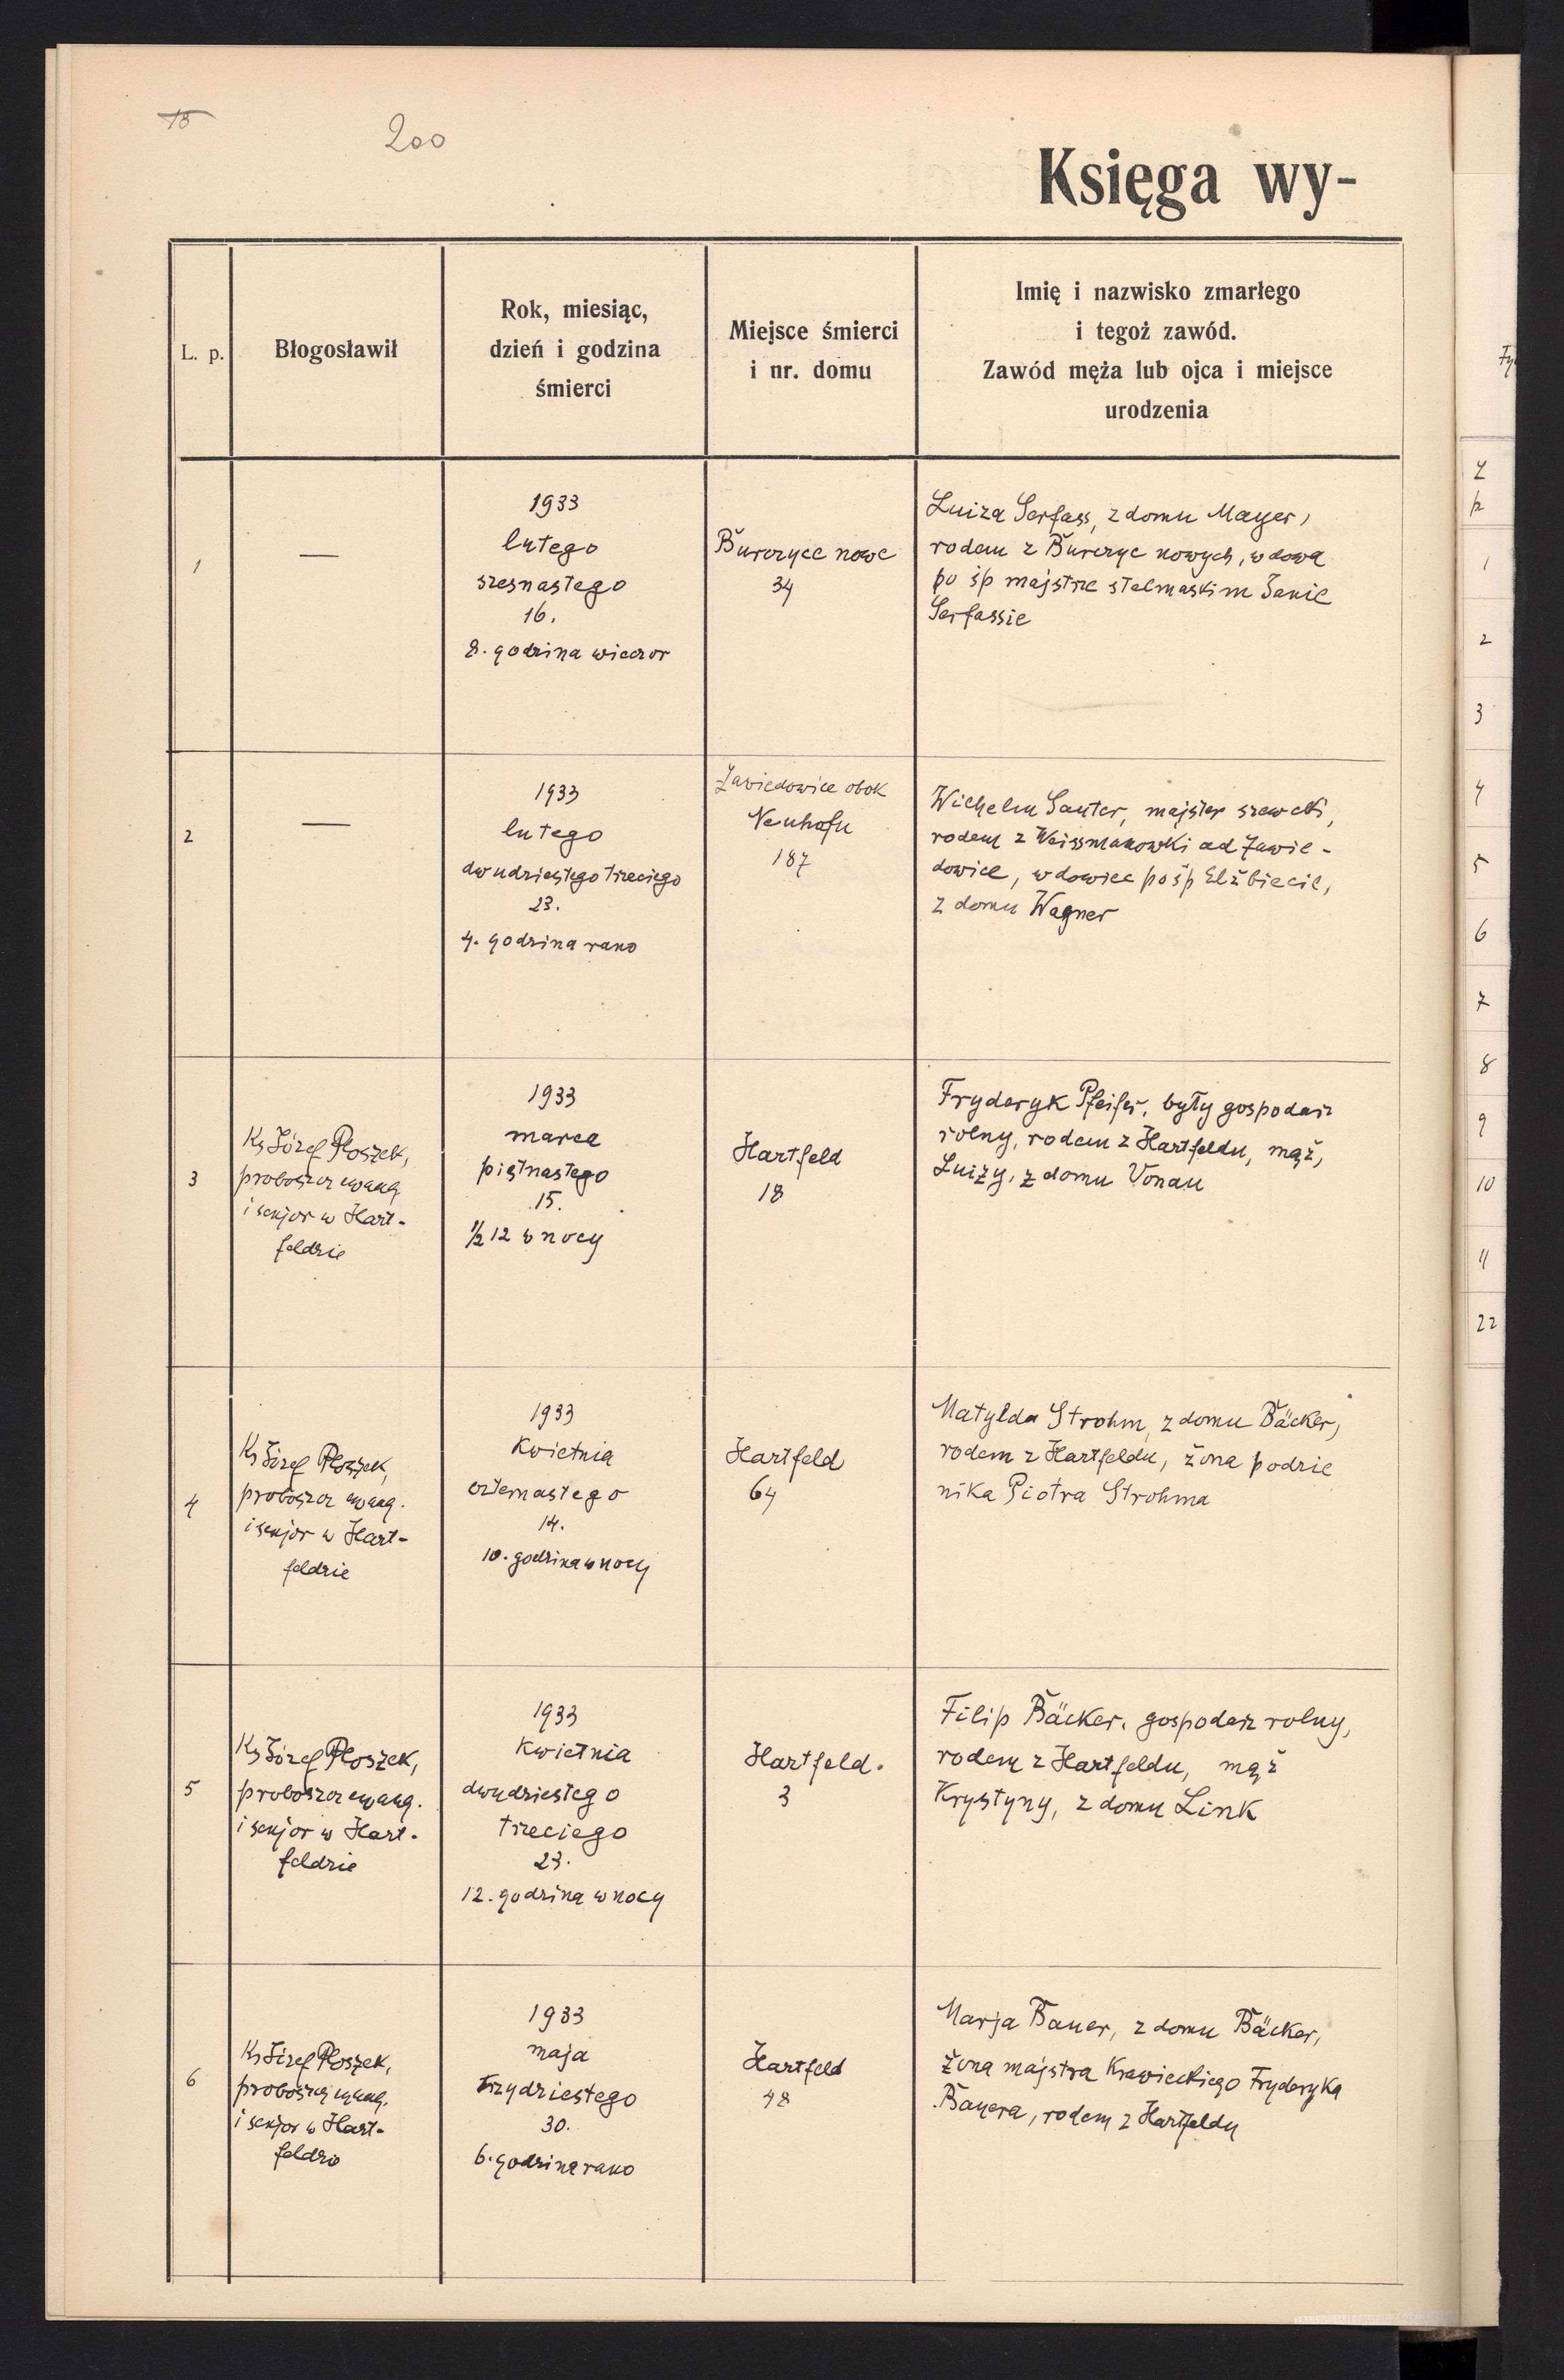 18
200
Księga wy-
L. p.
Błogosławił
Rok, miesiąc,
dzień i godzina
śmierci
Miejsce śmierci
i nr. domu
Imię i nazwisko zmarłego
i tegoż zawód.
Zawód męża lub ojca i miejsce
urodzenia
1
—
1933
lutego
szesnastego
16.
8. godzina wieczor
Burczyce nowe
34
Luiza Serfass, z domu Mayer,
rodem z Burczyc nowych, wdowa
po śp majstrze stelmaskim Janie
Serfassie
2
—
1933
lutego
dwudziestego trzeciego
23.
4. godzina rano
Zawiedowice obok
Neuhofu
187
Wilhelm Sauter, majster szewcki,
rodem z Weissmanowki ad Zawie-
dowice, wdowiec po śp Elżbiecie,
z domu Wagner
3
Ks Józef Ploszek,
proboszcz ewang.
i senjor w Hart-
feldzie
1933
marca
piętnastego
15.
½ 12 w nocy
Hartfeld
18
Fryderyk Pfeifer, były gospodarz
rolny, rodem z Hartfeldu, mąż,
Luizy, z domu Vonau
4
Ks Józef Ploszek,
proboszcz ewang.
i senjor w Hart-
feldzie
1933
kwietnia
czternastego
14.
10. godzina w nocy
Hartfeld
64
Matylda Strohm, z domu Bäcker,
rodem z Hartfeldu, żona podzie
nika Piotra Strohma
5
Ks Józef Ploszek,
proboszcz ewang.
i senjor w Hart-
feldzie
1933
kwietnia
dwudziestego
trzeciego
23.
12. godzina w nocy
Hartfeld.
3
Filip Bäcker, gospodarz rolny,
rodem z Hartfeldu, mąż
Krystyny, z domu Link
6
Ks Józef Ploszek,
proboszcz ewang.
i senjor w Hart-
feldzie
1933
maja
trzydziestego
30.
6. godzina rano
Hartfeld
48
Marja Bauer, z domu Bäcker,
żona majstra krawieckiego Fryderyka
Bauera, rodem z Hartfeldu
1
2
3
4
5
6
7
8
9
10
11
22